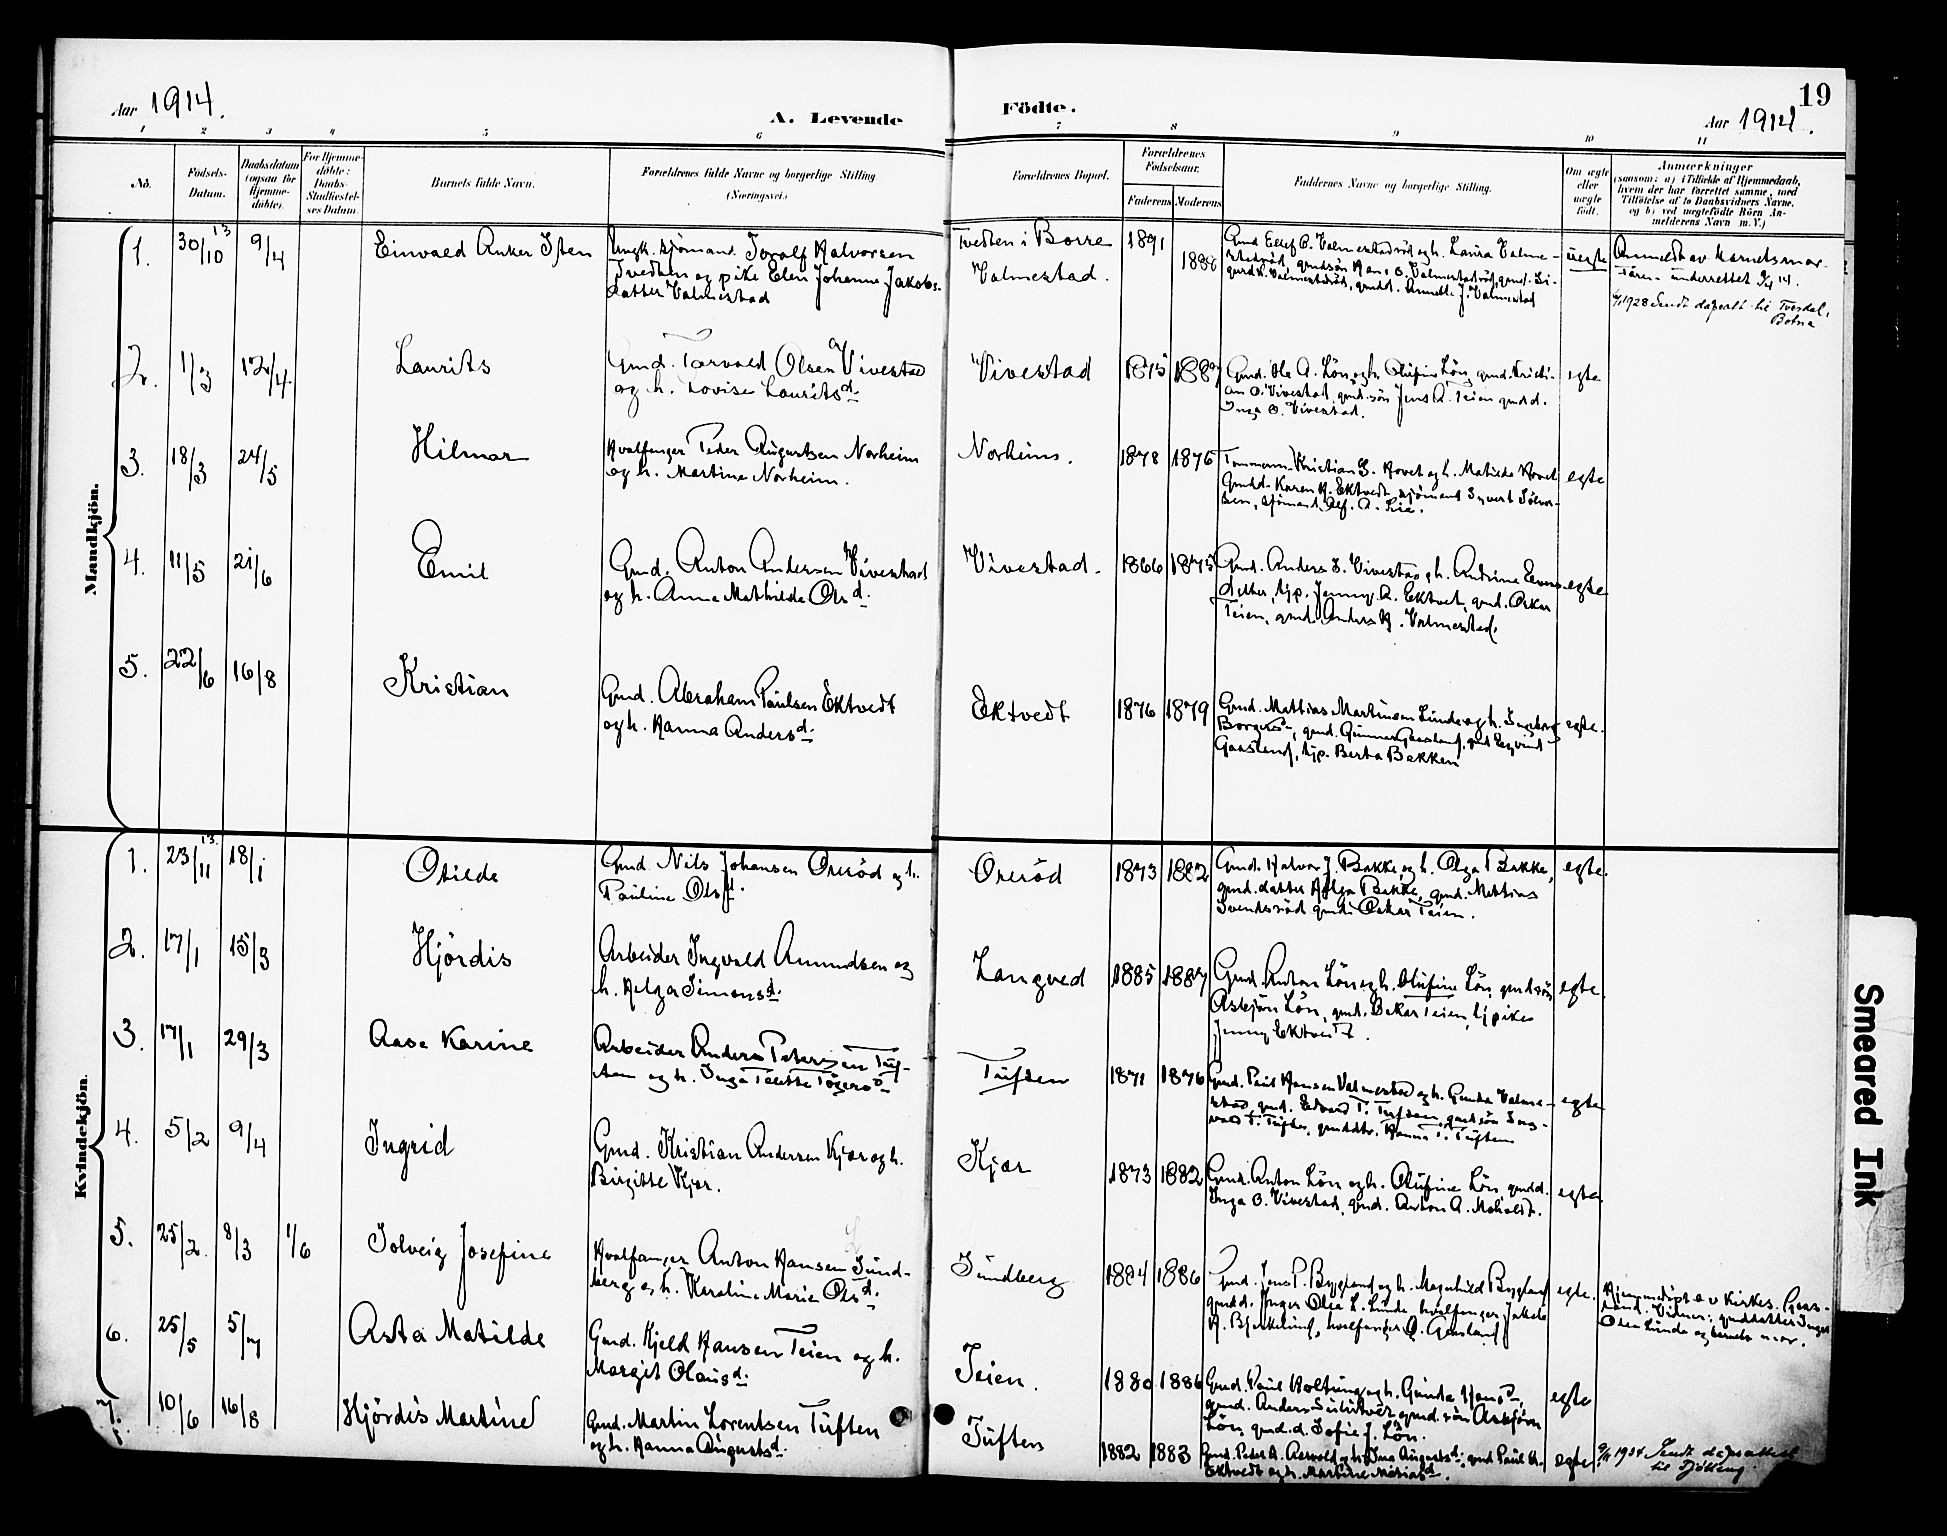 19
Aar 1914.
A. Levende
Födte.
Aar 1914.
1 2 3 4 5 6 7 8 9 10 11
No.
Födsels-
Datum.
Daabsdatum
(ogsaa for
Hjemme-
döbte).
For Hjemme-
döbte:
Daabs-
Stadfæstel-
ses Datum.
Barnets fulde Navn.
Forældrenes fulde Navne og borgerlige Stilling
(Næringsvei.)
Forældrenes Bopæl.
Forældrenes
Födselsaar.
Faderens Moderens
Faddernes Navne og borgerlige Stilling.
Om ægte
eller
uægte
födt.
Anmærkninger
(saasom: a) i Tilfælde af Hjemmedaab,
hvem der har forrettet samme, med
Tilföielse af to Daabsvidners Navne,
og b) ved uægtefödte Börn An-
melderens Navn m. V.)
Mandkjön.
1. 30/10 13 9/4 Einvald Anker Sten
Ungk. sjömand Toralf Halvorsen
Tvedten og pike Elen Johanne Jakobs-
datter Valmestad
Tvedten i Borre
Valmestad.
1891
1888
uegte
Anmeldt av barnets mor.
Faren underrettet 9/4 14.
1928 Sendt dåpsatt. til
Botne
2. 1/3 12/4 Laurits
Gmd. Torvald Olsen Vivestad
og h. Lovise Lauritsd.
Vivestad 1875
Gmd. Ole A. Lön og h. Olufine Lön, gmd. Kristi-
an O. Vivestad, gmd. sön Jens A. Teien gmdd.
Inga O. Vivestad.
egte
3. 18/3 24/5 Hilmar
Hvalfanger Peder Augustsen Norheim
og h. Martine Norheim.
Norheim. 1878 1876
Tömmerm. Kristian S. Hovet og h. Matilde Hovet
Gmdd. Karen A. Ektvedt, sjömand Syvert
sen, sjömand Alf. A. Lie.
egte
4. 11/5 21/6 Emil
Gmd. Anton Andersen Vivestad
og h. Anna Mathilde Olsd.
Vivestad. 1866 1875
Gmd. Anders S. Vivestad og h. Andrine Evens-
datter, tjp. Jenny A. Ektvet, gmd. Oskar
Teien, gmd. Anders H. Valmestad.
egte
5. 22/6 16/8 Kristian
Gmd. Abraham Paulsen Ektvedt
og h. Hanna Andersd.
Ektvedt 1876 1879
Gmd. Mattias Martinsen Lunde og h. Ingeborg
gmd. Gunnar Gaasland, gmd.
Gaasland, tjp. Berta Bakken
egte.
Kvindekjön.
1. 23/11 13. 18/1 Otilde
Gmd. Nils Johansen Oreröd og h.
Pauline Olsd.
Oreröd 1873 1882
Gmd. Halvor J. Bakke og h. Olga Bakke,
gmd. datter Helga Bakke, gmd. Mattias
Svendsröd gmd. Oskar Teien.
egte.
2. 17/1 15/3 Hjördis
Arbeider Ingvald Amundsen og
h. Helga Simonsd.
Langved 1885 1887
Gmd. Anton Lön og h. Olufine Lön, gmd sön
Asbjörn Lön, gmd. Oskar Teien, tj pike
Jenny Ektvedt.
egte.
3. 17/1 29/3 Aase Karine
Arbeider Anders Petersen Tuf-
ten og h. Inga
Tuften 1871 1876
Gmd. Paul Hansen Valmestad og h. Gunda Valme-
stad, gmd. Edvard T. Tuften, gmd sön Ing-
vald T. Tuften, gmddtr. Hanna T. Tuften
egte
4. 5/2 9/4 Ingrid
Gmd. Kristian Andersen Kjær og h.
Birgitte Kjær.
Kjær 1873 1882
Gmd. Anton Lön og h. Olufine Lön, gmdd.
Inga O. Vivestad, gmd. Anton A. Moholdt.
egte
5. 25/2. 8/3 1/6 Solveig Josefine
Hvalfanger Anton Hansen Sund-
berg og h. Karoline Marie Olsd.
Sundberg 1884 1886
Gmd. Jens P. Bygland og h. Magnhild Bygland
gmdd. Inger Olea L. Lunde, hvalfanger Jakob
A. Bjerkelund, hvalfanger O. Gaasland
egte.
Hjemmedöpt av Kirkes. Gaas-
land. Vidner: gmddatter Inger
Olea Lunde og barnets mor.
6. 25/5 5/7 Asta Matilde
Gmd. Kjeld Hansen Teien og h.
Margit Olausd.
Teien. 1880 1886
Gmd. Paul Holtung og h. Gunda Hansd.,
gmd. Anders gmd. sön Asbjörn
Lön, gmd. d. Sofie J. Lön.
egte
7. 10/6 16/8 Hjördis Martine
Gmd. Martin Lorentsen Tuften
og h. Hanna Augustsd.
Tuften 1882 1883
Gmd. Peter A. Aasvold og h. Ina Augustsd. gmd Paul A.
Ektvedt og h. Martine Matiasd.
egte
1934 Sendt dåpsattest
til
Smeared Ink